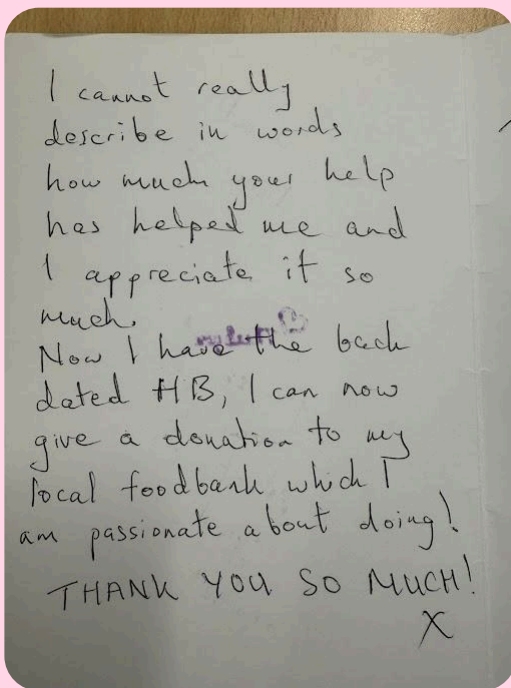 I cannot really
describe in words
how much your help
has helped me and
I appreciate it so
much.
Now I have the back
dated HB, I can now
give a donation to my
local foodbank which I
am passionate about doing!
THANK YOU SO MUCH!
X